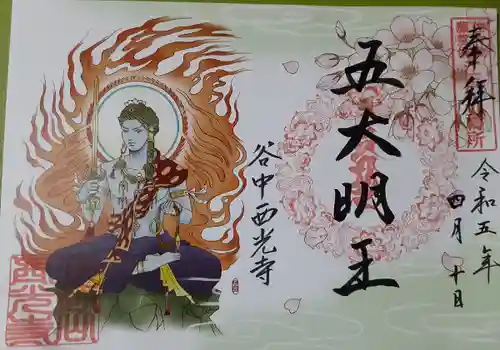 奉拝
令和五年
四月十日
五大明王
谷中西光寺